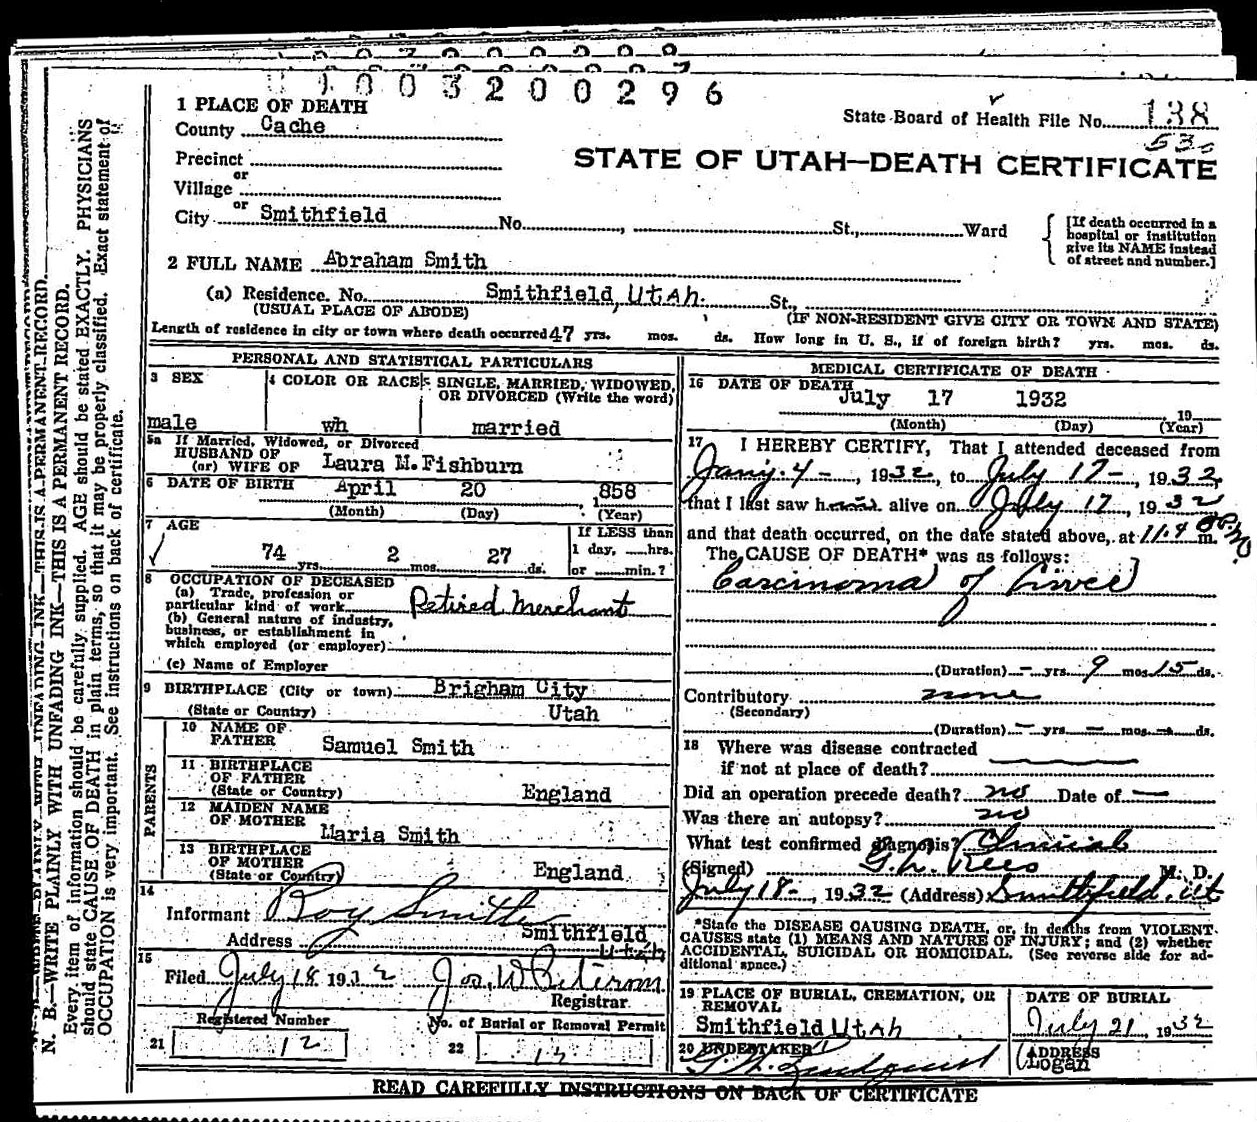 0 1 0 0 3 2 0 0 2 9 6
1 PLACE OF DEATH
County Cache
State Board of Health File No. 138
530
Precinct
or
Village
STATE OF UTAH—DEATH CERTIFICATE
or
City Smithfield No. , St., Ward
[If death occurred in a hospital or institution give its NAME instead of street and number.]
2 FULL NAME Abraham Smith
(a) Residence. No. Smithfield, Utah. St.,
(USUAL PLACE OF ABODE) (IF NON-RESIDENT GIVE CITY OR TOWN AND STATE)
Length of residence in city or town where death occurred 47 yrs. mos. ds. How long in U. S., if of foreign birth? yrs. mos. ds.
PERSONAL AND STATISTICAL PARTICULARS
3 SEX
male
4 COLOR OR RACE
wh
5 SINGLE, MARRIED, WIDOWED, OR DIVORCED (Write the word)
married
5a If Married, Widowed, or Divorced
HUSBAND OF
(or) WIFE OF Laura M. Fishburn
6 DATE OF BIRTH April 20 1858
(Month) (Day) (Year)
7 AGE
74 yrs. 2 mos. 27 ds.
If LESS than
1 day, hrs.
or min.?
8 OCCUPATION OF DECEASED
(a) Trade, profession or
particular kind of work Retired Merchant
(b) General nature of industry,
business, or establishment in
which employed (or employer)
(c) Name of Employer
9 BIRTHPLACE (City or town) Brigham City
(State or Country) Utah
PARENTS
10 NAME OF
FATHER Samuel Smith
11 BIRTHPLACE
OF FATHER
(State or Country) England
12 MAIDEN NAME
OF MOTHER
Maria Smith
13 BIRTHPLACE
OF MOTHER
(State or Country) England
14
Informant Roy Smith
Address Smithfield
Utah
15
Filed July 18 1932 Jos. W. Peterson
Registrar.
Registered Number
21 12
No. of Burial or Removal Permit
22 12
MEDICAL CERTIFICATE OF DEATH
16 DATE OF DEATH
July 17 1932 19
(Month) (Day) (Year)
17 I HEREBY CERTIFY, That I attended deceased from
Jany. 4 -, 1932, to July 17 -, 1932,
that I last saw h alive on July 17, 1932
and that death occurred, on the date stated above, at 11.40 P.M. m.
The CAUSE OF DEATH* was as follows:
Carcinoma of Liver
(Duration) - yrs. 9 mos. 15 ds.
Contributory none
(Secondary)
(Duration) - yrs. - mos. - ds.
18 Where was disease contracted
if not at place of death?
Did an operation precede death? no Date of —
Was there an autopsy? no
What test confirmed diagnosis? Clinical
(Signed) G. L. Rees M. D.
July 18 -, 1932 (Address) Smithfield, Ut
*State the DISEASE CAUSING DEATH, or, in deaths from VIOLENT
CAUSES state (1) MEANS AND NATURE OF INJURY; and (2) whether
ACCIDENTAL, SUICIDAL OR HOMICIDAL. (See reverse side for ad-
ditional space.)
19 PLACE OF BURIAL, CREMATION, OR
REMOVAL
Smithfield Utah
DATE OF BURIAL
July 21 1932
20 UNDERTAKER
ADDRESS
Logan
READ CAREFULLY INSTRUCTIONS ON BACK OF CERTIFICATE
N. B.—WRITE PLAINLY WITH UNFADING INK—THIS IS A PERMANENT RECORD.
Every item of information should be carefully supplied. AGE should be stated EXACTLY. PHYSICIANS
should state CAUSE OF DEATH in plain terms, so that it may be properly classified. Exact statement of
OCCUPATION is very important. See instructions on back of certificate.